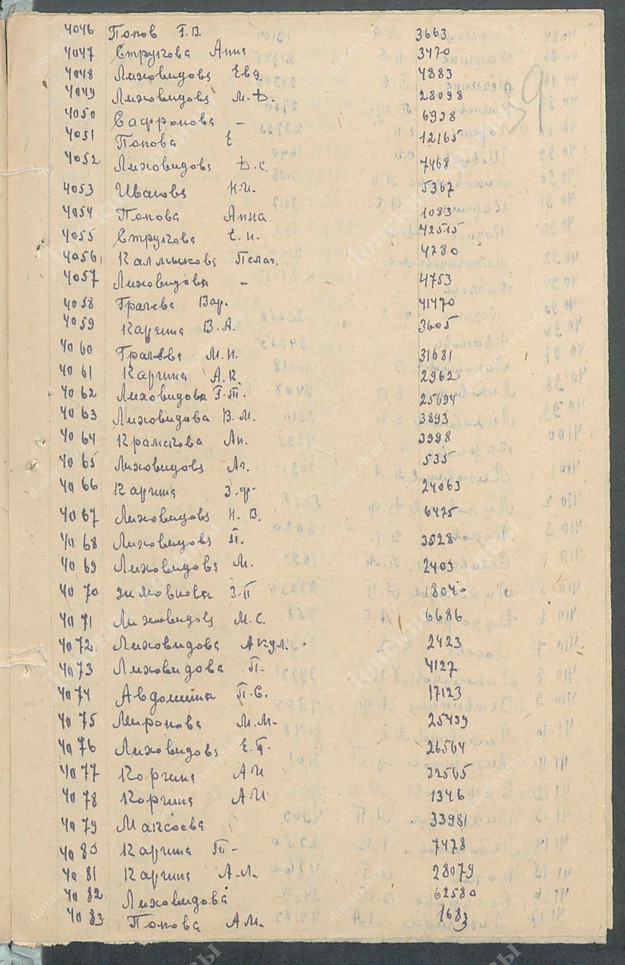 4046 Попов Г.В. 3663
4047 Стругова Анна 3470
4048 Лиховидова Евд. 4883
4049 Лиховидова М.Д. 28098
4050 Сафронова - 6938
4051 Попова Е 12165
4052 Лиховидова Д.С. 7468
4053 Иванова Н.И. 5367
4054 Попова Анна 1083
4055 Стругова Е.И. 42515
4056 Калмыкова Пелаг. 4280
4057 Лиховидова - 4753
4058 Грачева Вар. 41470
4059 Каргина В.А. 3605
4060 Грачева М.И. 31681
4061 Каргина А.К. 2962
4062 Лиховидова Г.П. 25694
4063 Лиховидова В.М. 3893
4064 Крамскова Ан. 3998
4065 Лиховидова Аг. 535
4066 Каргина З.Ф. 24063
4067 Лиховидова Н.В. 6425
4068 Лиховидова П. 3028
4069 Лиховидова М. 2403
4070 Зимовнова З.П 1804
4071 Лиховидова М.С. 6686
4072 Лиховидова Акул. 2423
4073 Лиховидова П- 4127
4074 Авдошина П.С. 17123
4075 Миронова М.М- 25439
4076 Лиховидова Е.П. 26564
4077 Коргина АИ 32565
4078 Коргина АИ 1346
4079 Макеева 33981
4080 Каргина П- 7478
4081 Каргина А.А. 28079
4082 Лиховидова 62580
4083 Попова А.М. 1683